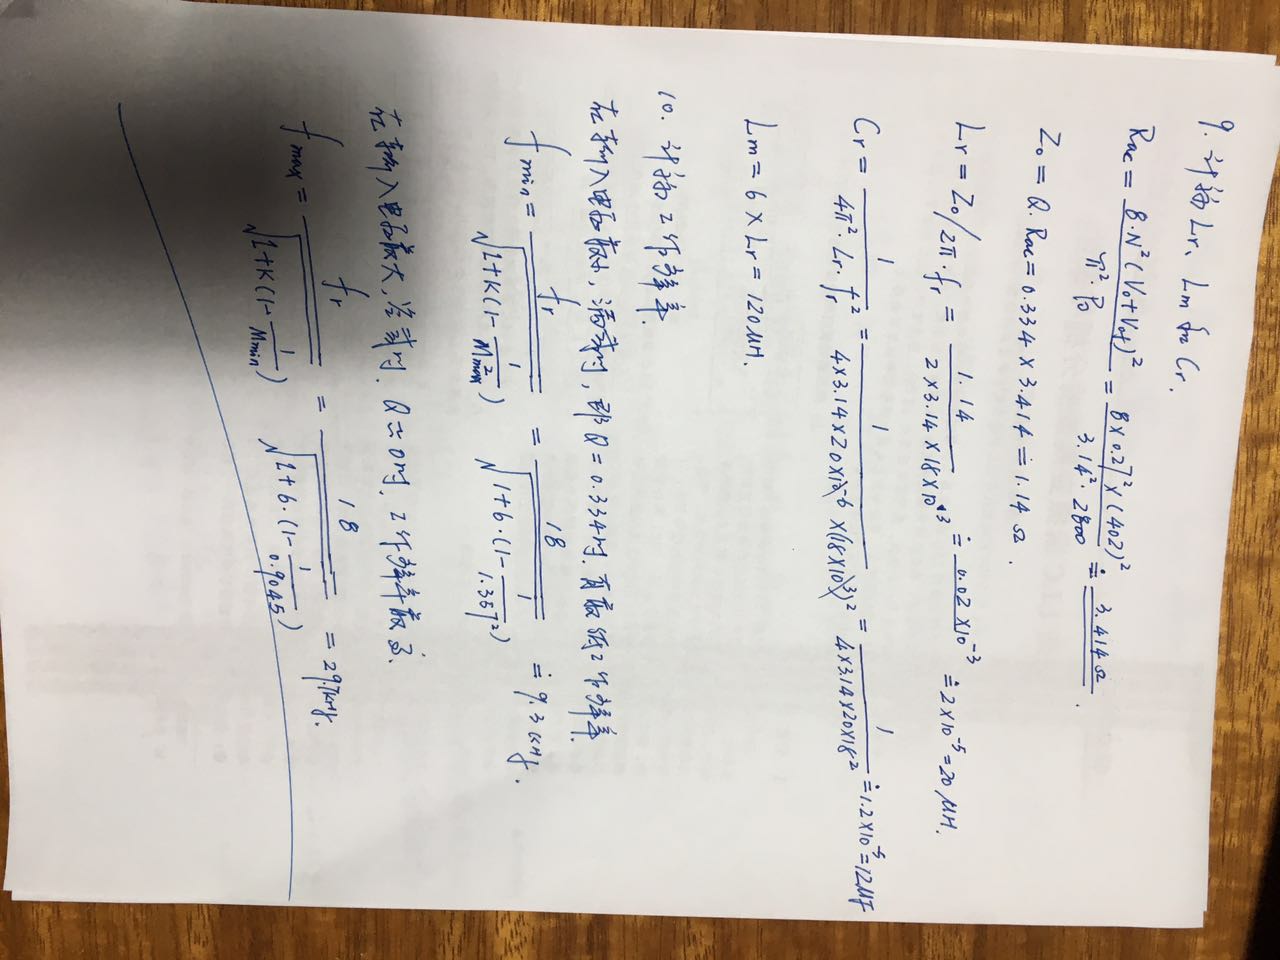 9. 计算Lr、Lm和Cr.
Rac = 8·N²(Vo+Vof)² / π²·Po = 8×0.27²×(402)² / 3.14² 2800 ≐ 3.414Ω.
Zo = Q·Rac = 0.334 × 3.414 ≐ 1.14Ω.
Lr = Zo/2π·fr = 1.14 / 2×3.14×18×10³ ≐ 0.02×10⁻³ ≐ 2×10⁻⁵ = 20μH.
Cr = 1 / 4π²·Lr·fr² = 1 / 4×3.14×20×10⁻⁶×(18×10³)² = 1 / 4×3.14×20×18² ≐ 1.2×10⁻⁵ = 12μF
Lm = 6×Lr = 120μH.
10. 计算工作频率.
在输入电压最小,满载时,即Q=0.334时.有最低工作频率.
fmin = fr / √1+K(1-1/M²max) = 18 / √1+6·(1-1/1.357²) ≐ 9.3kHz.
在输入电压最大,空载时.Q≈0时.工作频率最高.
fmax = fr / √1+K(1-1/Mmin) = 18 / √1+6·(1-1/0.9045) = 29.7kHz.